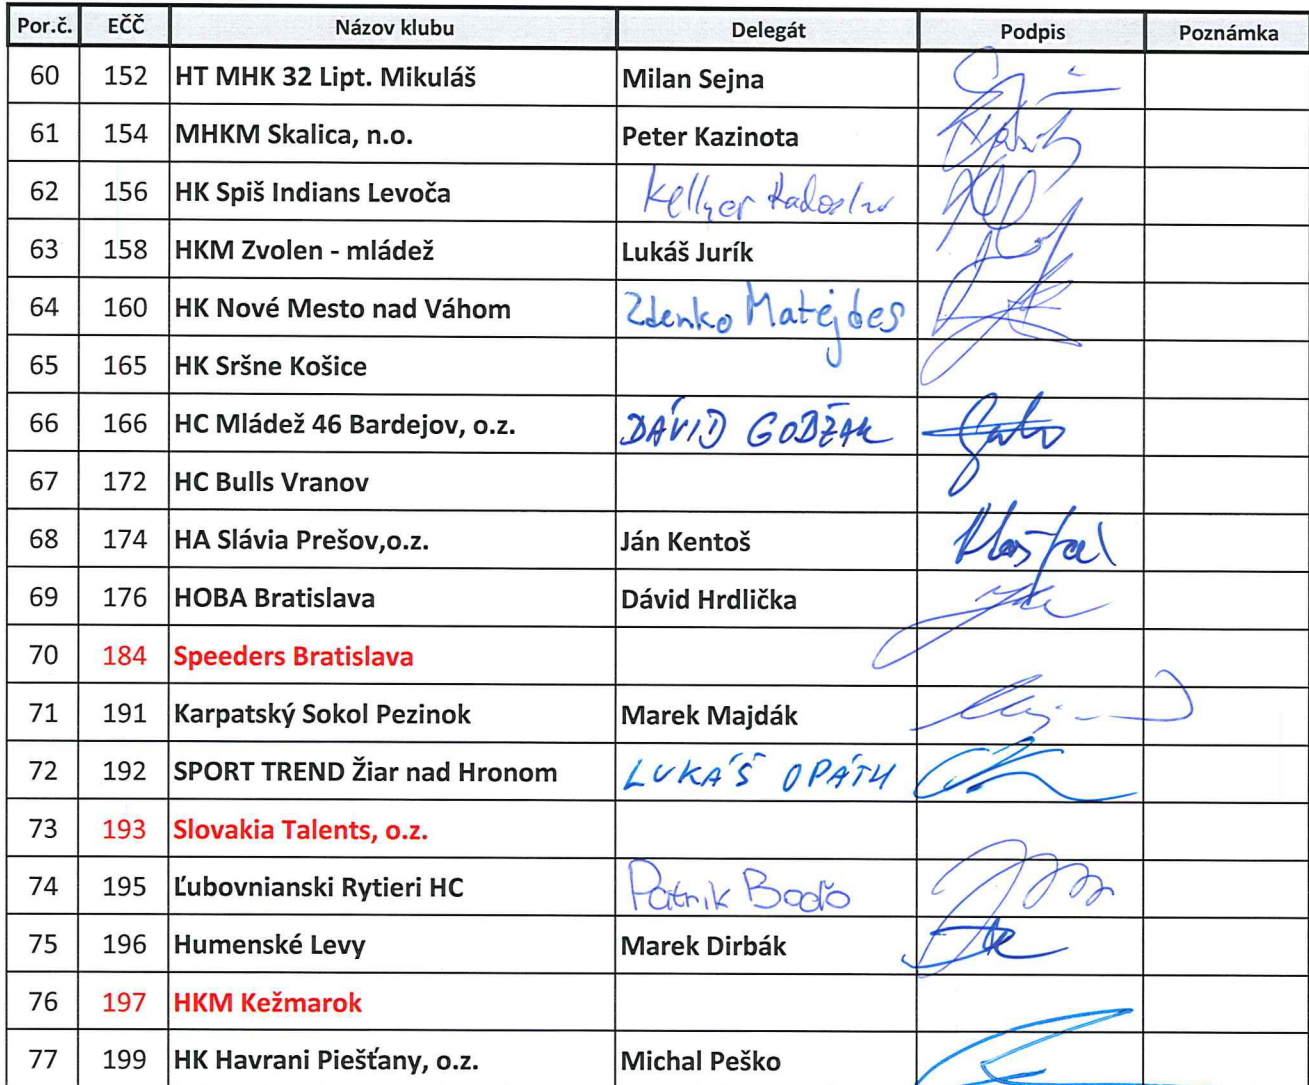 Por.č. EČČ Názov klubu Delegát Podpis Poznámka
60 152 HT MHK 32 Lipt. Mikuláš Milan Sejna
61 154 MHKM Skalica, n.o. Peter Kazinota
62 156 HK Spiš Indians Levoča Kellner Radoslav
63 158 HKM Zvolen - mládež Lukáš Jurík
64 160 HK Nové Mesto nad Váhom Zdenko Matejdes
65 165 HK Sršne Košice
66 166 HC Mládež 46 Bardejov, o.z. DÁVID GOBŽAK
67 172 HC Bulls Vranov
68 174 HA Slávia Prešov,o.z. Ján Kentoš
69 176 HOBA Bratislava Dávid Hrdlička
70 184 Speeders Bratislava
71 191 Karpatský Sokol Pezinok Marek Majdák
72 192 SPORT TREND Žiar nad Hronom LUKÁŠ OPÁTH
73 193 Slovakia Talents, o.z.
74 195 Ľubovnianski Rytieri HC Patrik Boďo
75 196 Humenské Levy Marek Dirbák
76 197 HKM Kežmarok
77 199 HK Havrani Piešťany, o.z. Michal Peško